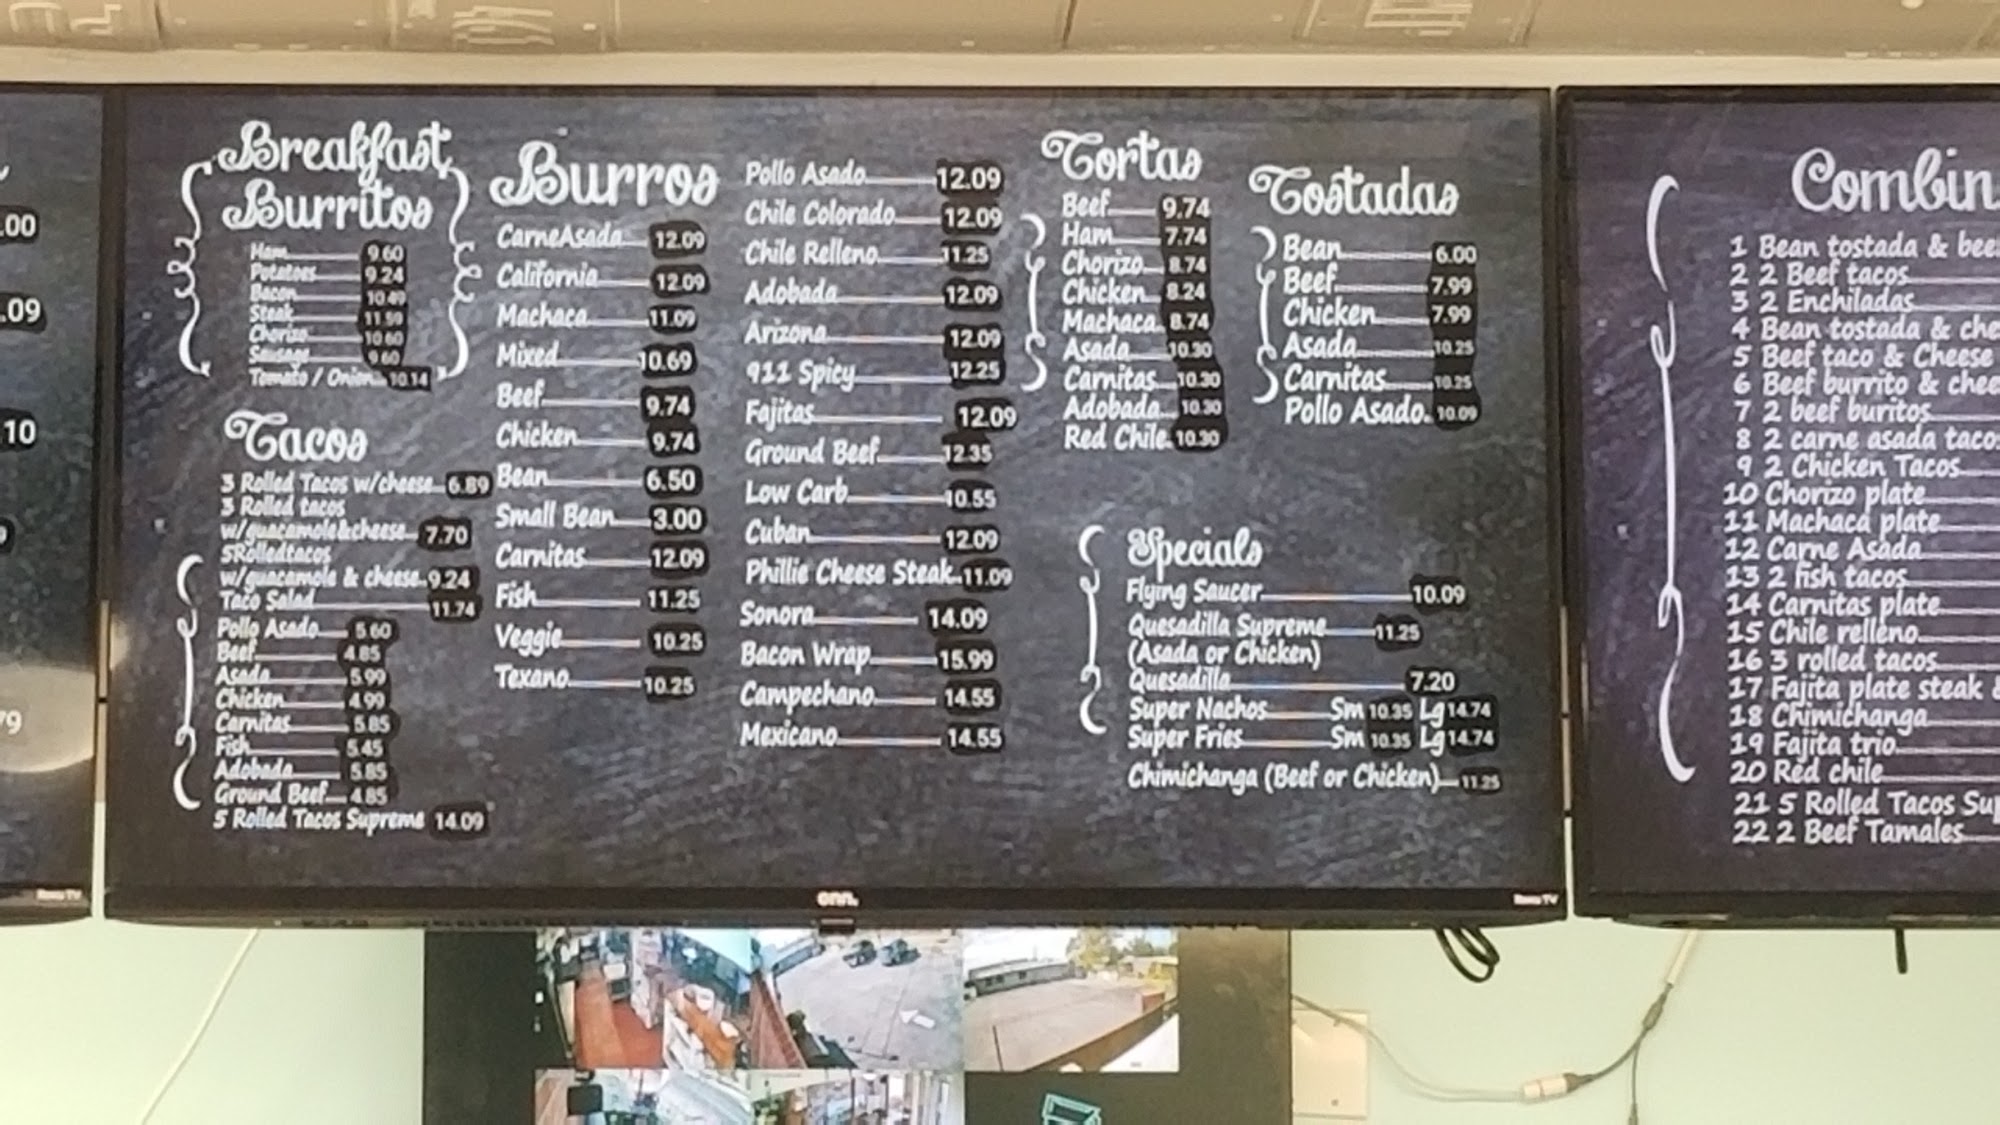 .00
.09
.10
79
Breakfast
Burritos
Ham 9.60
Potatoes 9.24
Bacon 10.49
Steak 11.59
Chorizo 10.60
Sausage 9.60
Tomato / Onion 10.14
Tacos
3 Rolled Tacos w/cheese 6.89
3 Rolled tacos
w/guacamole&cheese 7.70
5Rolledtacos
w/guacamole & cheese 9.24
Taco Salad 11.74
Pollo Asado 5.60
Beef 4.85
Asada 5.99
Chicken 4.99
Carnitas 5.85
Fish 5.45
Adobada 5.85
Ground Beef 4.85
5 Rolled Tacos Supreme 14.09
Burros
CarneAsada 12.09
California 12.09
Machaca 11.09
Mixed 10.69
Beef 9.74
Chicken 9.74
Bean 6.50
Small Bean 3.00
Carnitas 12.09
Fish 11.25
Veggie 10.25
Texano 10.25
Pollo Asado 12.09
Chile Colorado 12.09
Chile Relleno 11.25
Adobada 12.09
Arizona 12.09
911 Spicy 12.25
Fajitas 12.09
Ground Beef 12.35
Low Carb 10.55
Cuban 12.09
Phillie Cheese Steak 11.09
Sonora 14.09
Bacon Wrap 15.99
Campechano 14.55
Mexicano 14.55
Tortas
Beef 9.74
Ham 7.74
Chorizo 8.74
Chicken 8.24
Machaca 8.74
Asada 10.30
Carnitas 10.30
Adobada 10.30
Red Chile 10.30
Tostadas
Bean 6.00
Beef 7.99
Chicken 7.99
Asada 10.25
Carnitas 10.25
Pollo Asado 10.09
Specials
Flying Saucer 10.09
Quesadilla Supreme 11.25
(Asada or Chicken)
Quesadilla 7.20
Super Nachos Sm 10.35 Lg 14.74
Super Fries Sm 10.35 Lg 14.74
Chimichanga (Beef or Chicken) 11.25
Combin
1 Bean tostada & bee
2 2 Beef tacos
3 2 Enchiladas
4 Bean tostada & che
5 Beef taco & Cheese
6 Beef burrito & chee
7 2 beef buritos
8 2 carne asada taco
9 2 Chicken Tacos
10 Chorizo plate
11 Machaca plate
12 Carne Asada
13 2 fish tacos
14 Carnitas plate
15 Chile relleno
16 3 rolled tacos
17 Fajita plate steak &
18 Chimichanga
19 Fajita trio
20 Red chile
21 5 Rolled Tacos Sup
22 2 Beef Tamales
Roku TV
onn.
Roku TV